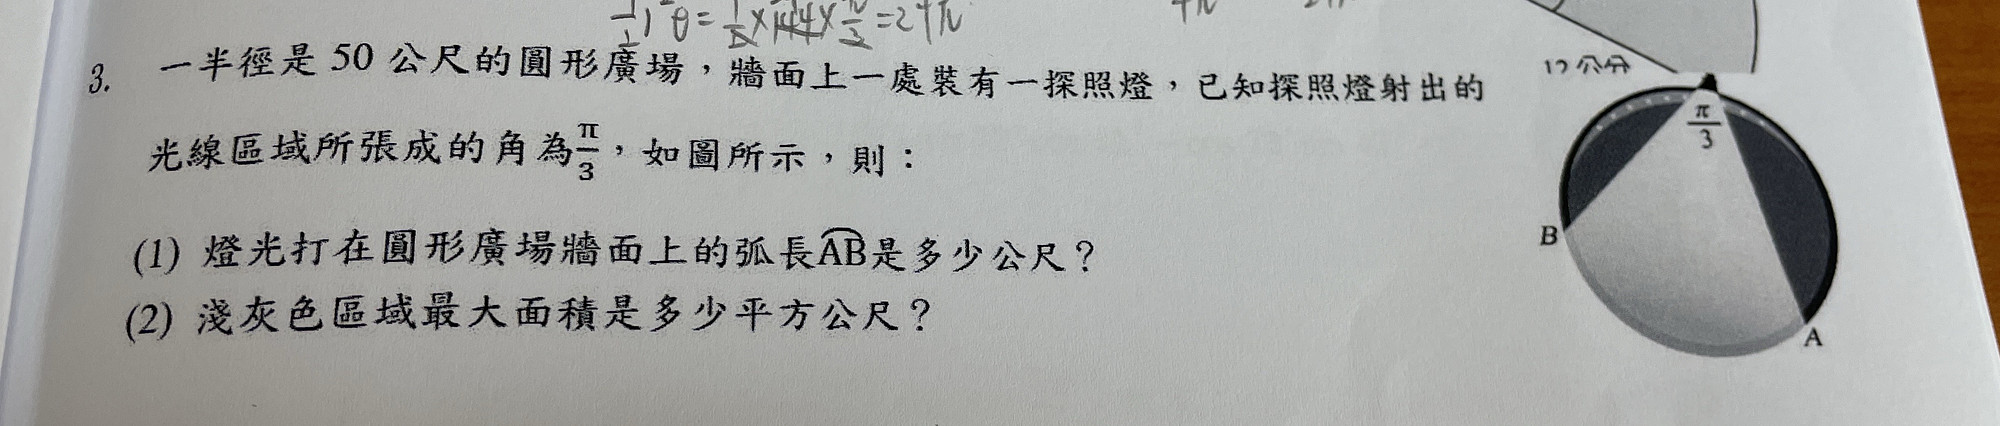 ½r²θ = ½×144×π/3 = 24π
12公分
3. 一半徑是 50 公尺的圓形廣場，牆面上一處裝有一探照燈，已知探照燈射出的
光線區域所張成的角為π/3，如圖所示，則：
(1) 燈光打在圓形廣場牆面上的弧長AB是多少公尺？
(2) 淺灰色區域最大面積是多少平方公尺？
π/3
B
A